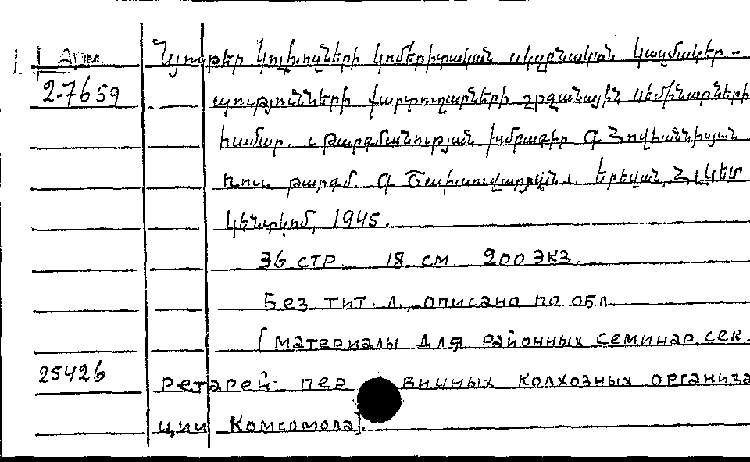 Նյութեր կոլխոզների կոմերիտական սկզբնական կազմակեր-
2-7659 պությունների քարտուղարների շրջանային սեմինարների
համար. Թարգմանության խմբագիր Գ Հովհաննիսյան
Ռուս. թարգմ. Գ Երևան, ՀԼԿԵՄ
կենտկոմ, 1945.
36 стр. 18 см 200 экз.
Без тит. л., описано по обл.
[материалы для районных семинар. сек-
25426 ретарей пер вичных колхозных организа
ции Комсомола].